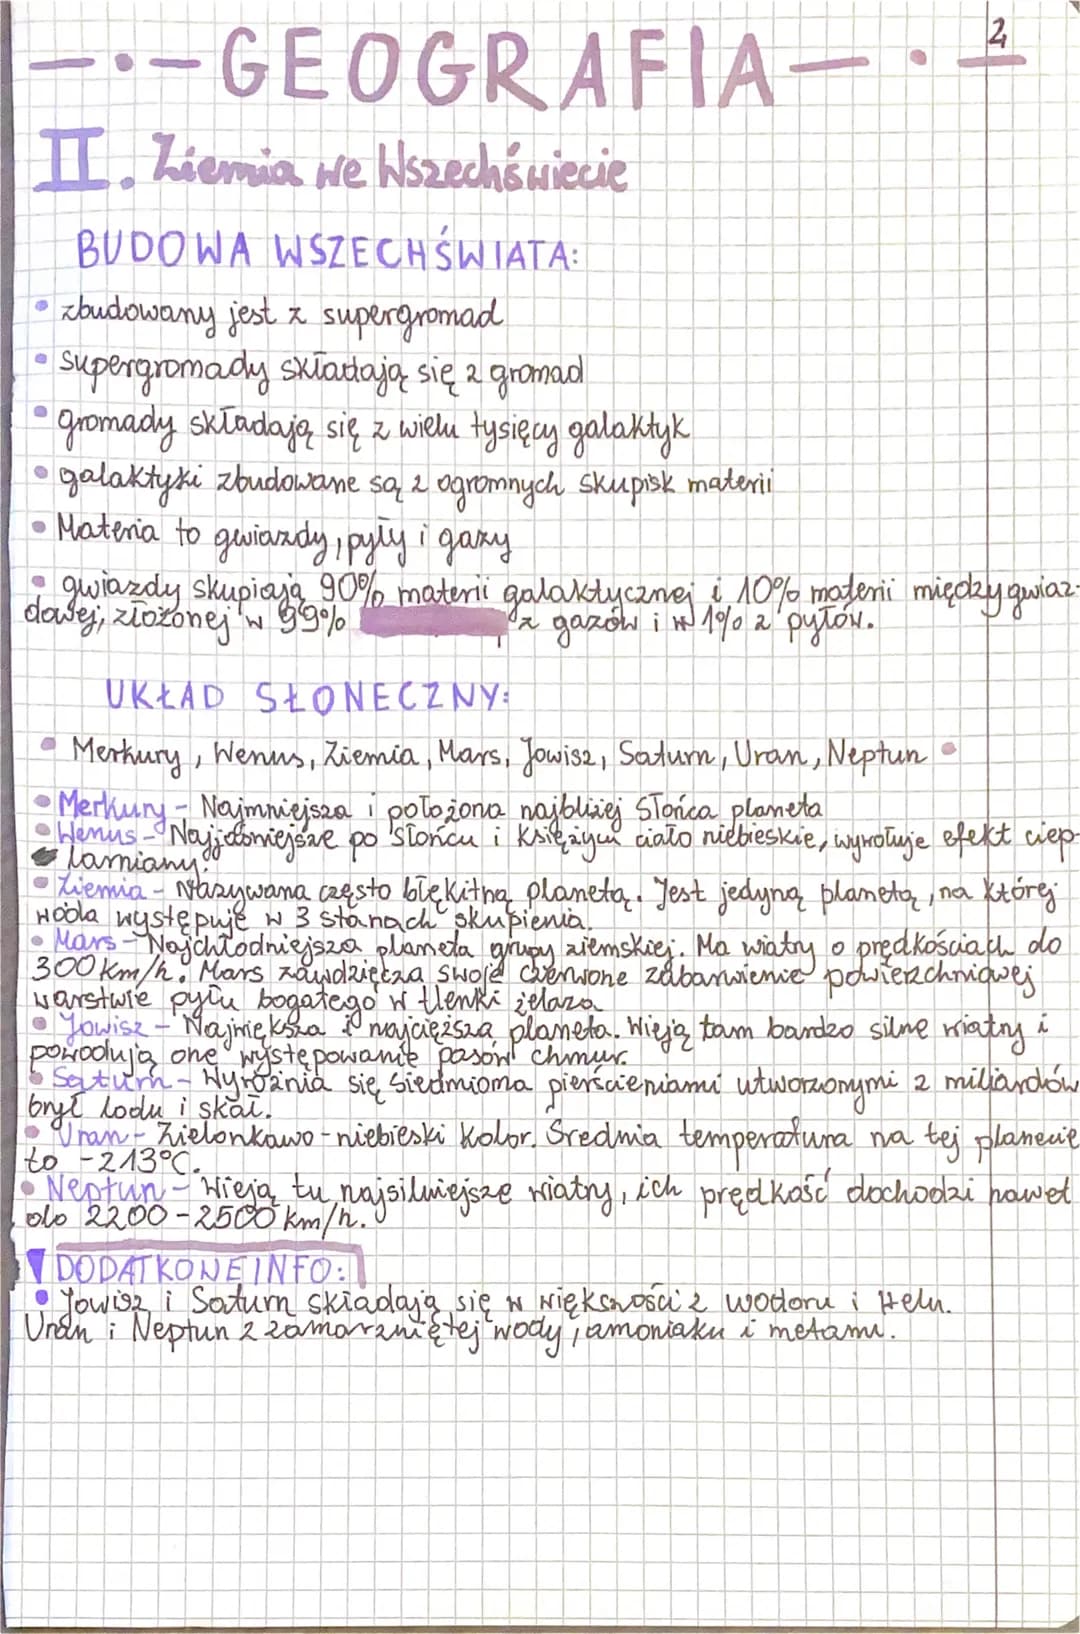 2
-·-GEOGRAFIA-·-
II. Ziemia we Wszechświecie
BUDOWA WSZECHŚWIATA:
• zbudowany jest z supergromad
• Supergromady składają się z gromad
• gromady składają się z wielu tysięcy galaktyk
• galaktyki zbudowane są z ogromnych skupisk materii
• Materia to gwiazdy, pyły i gazy
• gwiazdy skupiają 90% materii galaktycznej i 10% materii międzygwiaz-
dowej, złożonej w 99% z gazów i w 1% z pyłów.
UKŁAD SŁONECZNY:
• Merkury, Wenus, Ziemia, Mars, Jowisz, Saturn, Uran, Neptun •
• Merkury - Najmniejsza i położona najbliżej Słońca planeta
• Wenus - Najjaśniejsze po Słońcu i Księżycu ciało niebieskie, wywołuje efekt ciep-
larniany.
• Ziemia - Nazywana często błękitną planetą. Jest jedyną planetą, na której
woda występuje w 3 stanach skupienia.
• Mars - Najchłodniejsza planeta grupy ziemskiej. Ma wiatry o prędkościach do
300 km/h. Mars zawdzięcza swoje czerwone zabarwienie powierzchniowej
warstwie pyłu bogatego w tlenki żelaza
• Jowisz - Największa i najcięższa planeta. Wieją tam bardzo silne wiatry i
powodują one występowanie pasów chmur.
• Saturn - Wyróżnia się siedmioma pierścieniami utworzonymi z miliardów
brył lodu i skał.
• Uran - Zielonkawo-niebieski kolor. Średnia temperatura na tej planecie
to -213°C.
• Neptun - Wieją tu najsilniejsze wiatry, ich prędkość dochodzi nawet
do 2200-2500 km/h.
DODATKOWE INFO:
• Jowisz i Saturn składają się w większości z wodoru i Helu.
Uran i Neptun z zamarzniętej wody, amoniaku i metanu.